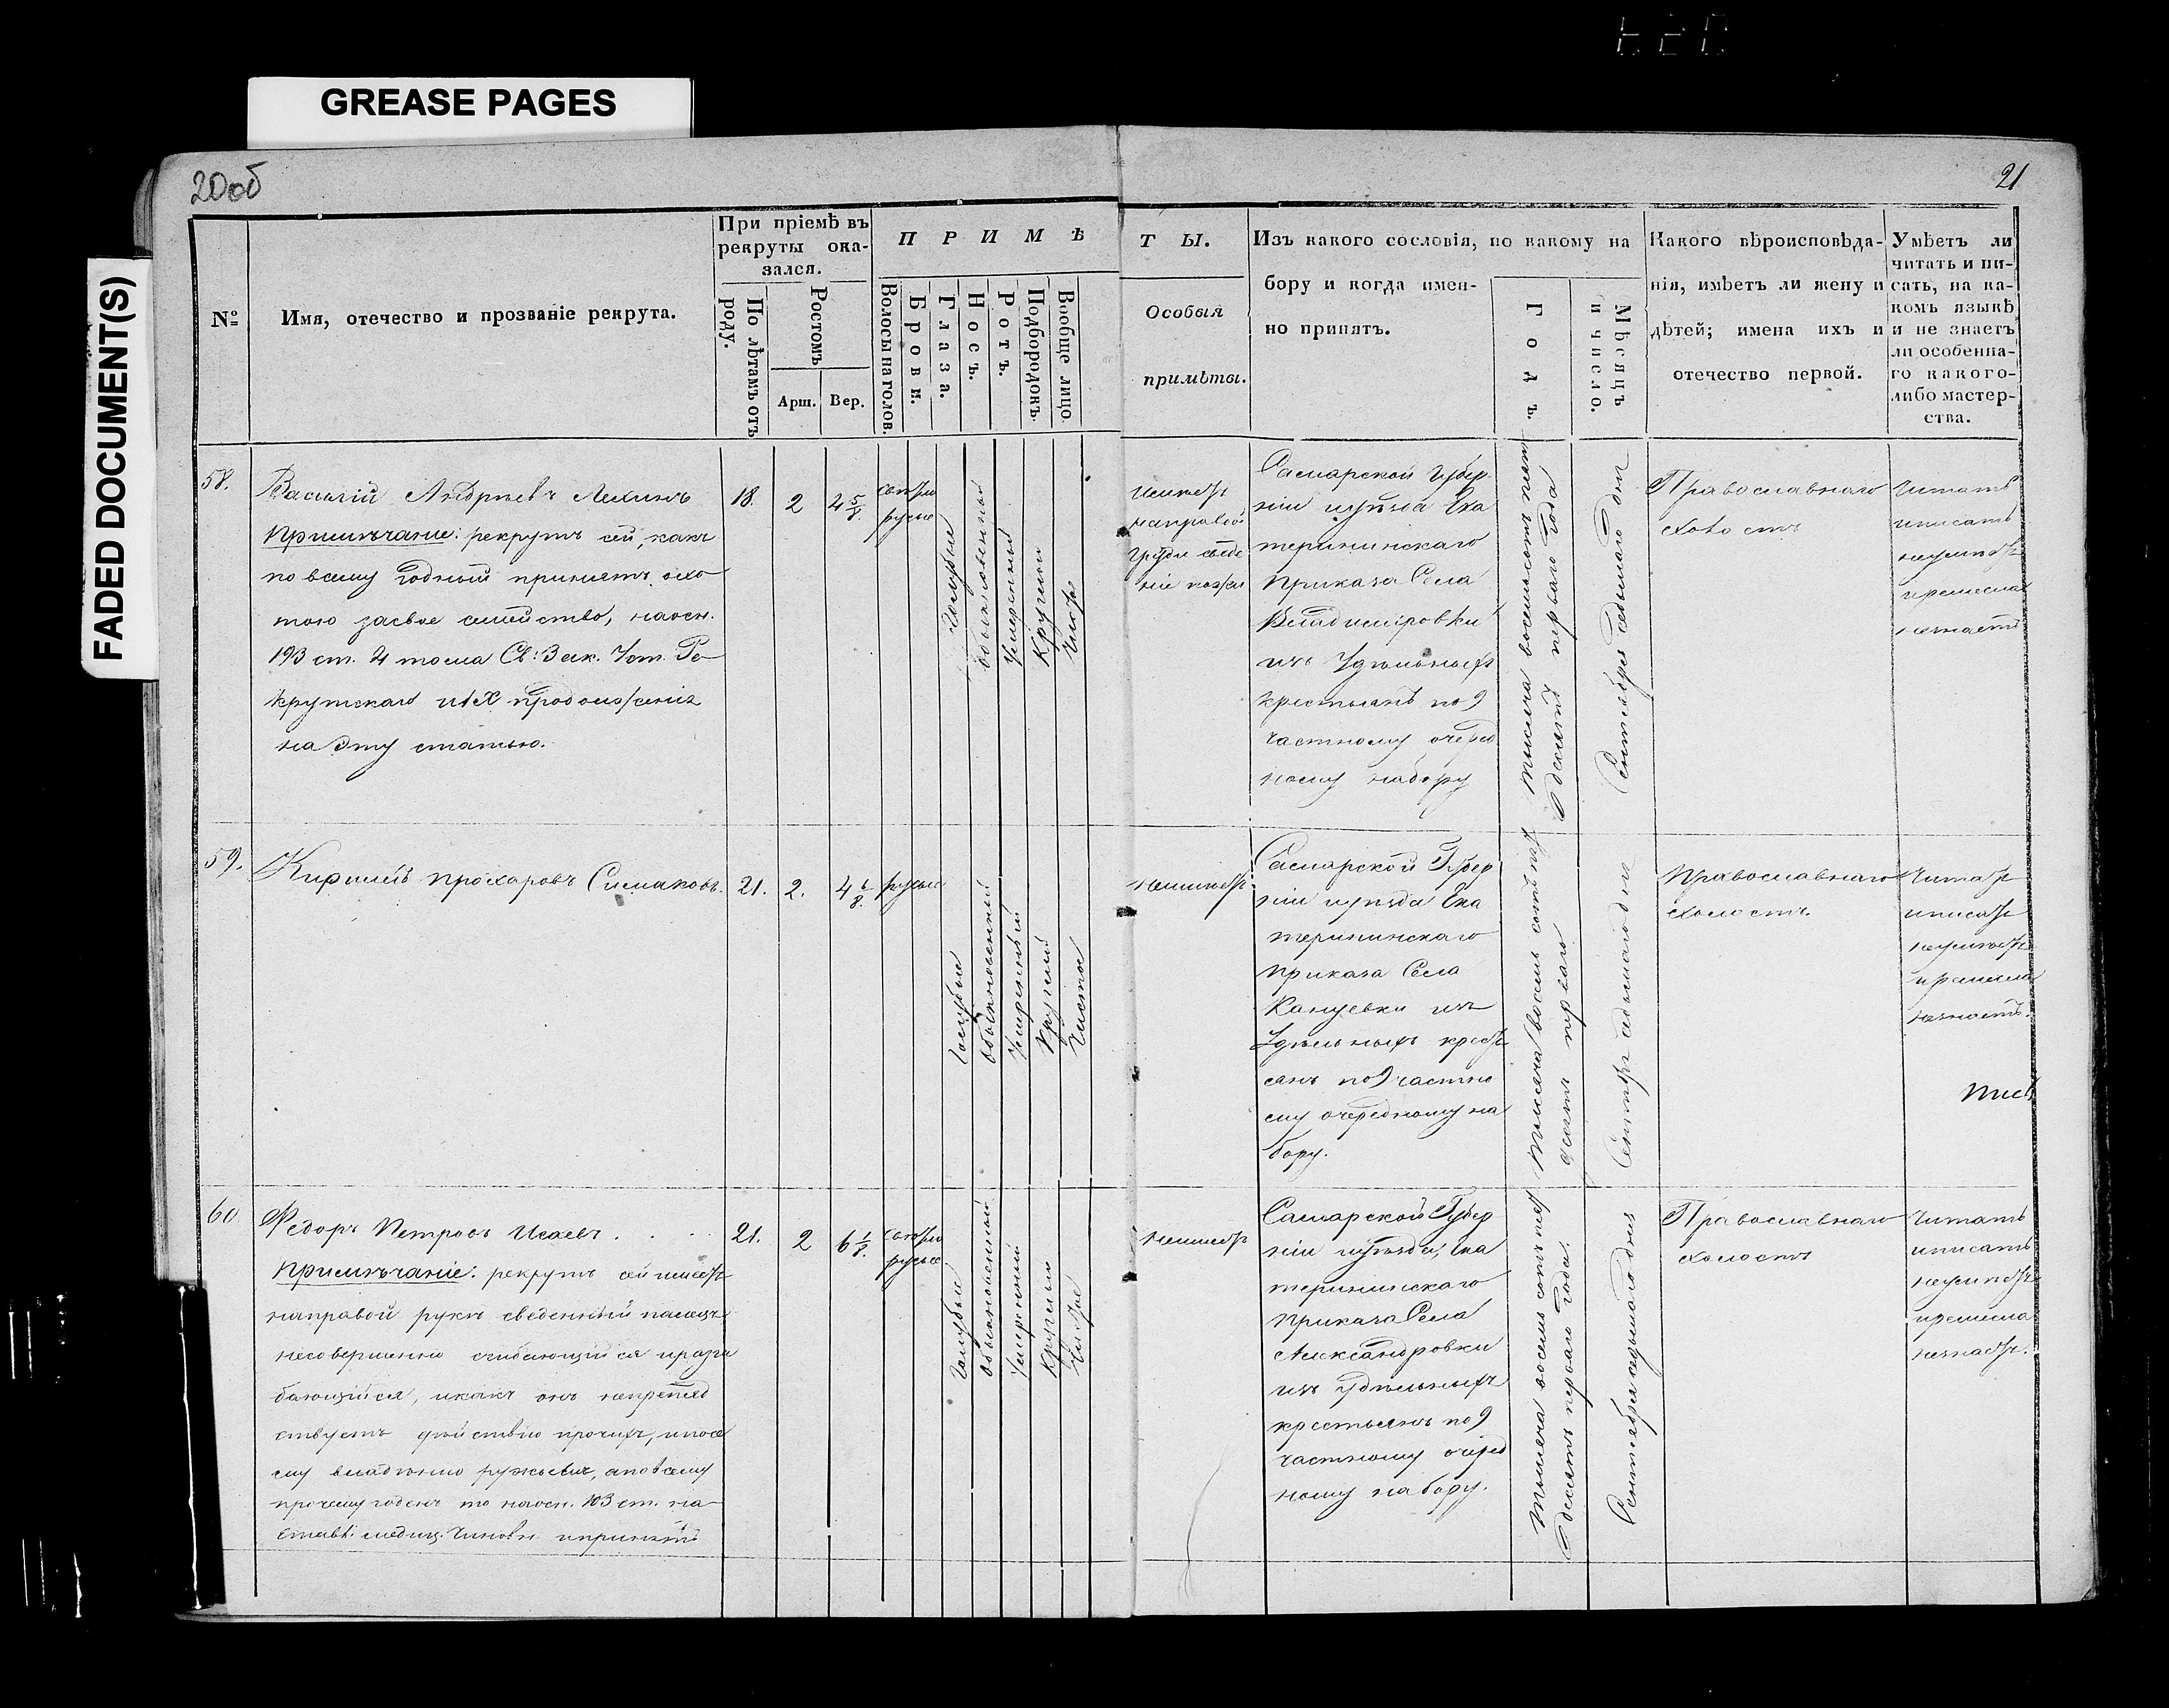 GREASE PAGES
FADED DOCUMENT(S)
20об
21
№
Имя, отчество и прозваніе рекрута.
При пріемѣ въ
рекруты ока-
зался.
По лѣтамъ отъ
роду.
Ростомъ
Арш.
Вер.
ПРИМѢ
Волосы на голов.
Брови.
Глаза.
Носъ.
Ротъ.
Подбородокъ.
Вообще лицо.
ТЫ.
Особыя
примѣты.
Изъ какого сословія, по какому на
бору и когда имен-
но принятъ.
Годъ.
Мѣсяцъ
и число.
Какого вѣроисповѣда-
нія, имѣетъ ли жену и
дѣтей; имена ихъ и
отечество первой.
Умѣетъ ли
читать и пи-
сать, на ка-
комъ языкѣ
и не знаетъ
ли особенна-
го какого-
либо мастер-
ства.
58.
Василій Андреевъ Лехинъ
Примѣчаніе: рекрутъ сей, какъ
по всему годный принятъ охо
тою за свое семейство, на осн.
193 ст. 4 тома Св: Зак. Уст. Ре-
крутскаго и IX продолженія
на эту статью.
18.
2
4 5/8.
светло
русые
Голубые
обыкновенный
Умеренный
Круглый
Чистое
имеетъ
на правой
груди сведе
ніе кожи
Самарской Губер
ніи уѣзда Ека
терининскаго
приказа Села
Владиміровки
изъ Удѣльныхъ
крестьянъ по 9
частному очеред
ному набору
тысяча восемьсотъ шесть
десятъ перваго года
Сентября седьмаго дня
Православнаго
холостъ
Читать
и писать
неумеетъ
и ремесла
незнаетъ
59.
Кирилъ Прохаровъ Симаковъ.
21.
2.
4 6/8.
русые
Голубые
обыкновенный
Умеренный
Круглый
Чистое
неимеетъ.
Самарской Губер
ніи уѣзда Ека
терининскаго
приказа Села
Кануевки изъ
Удѣльныхъ кресть
янъ по 9 частно
му очередному на
бору.
Православнаго
холостъ.
Читать
и писать
неумеетъ
и ремесла
незнаетъ.
60
Федоръ Петровъ Исаевъ . . . .
Примѣчаніе: рекрутъ сей имеетъ
на правой рукѣ сведенный палецъ
несовершенно сгибающійся и разги
бающійся, и какъ онъ непрепятс
ствуетъ дѣйствію прочихъ, и по се
му владѣнію ружьемъ, а по всему
прочему годенъ то на осн. 103 ст. на-
ставл. медиц. Чиновн. и принятъ
21.
2
6 1/8.
светло
русые.
Голубые
обыкновенный
Умеренный
Круглый
Чистое
неимеетъ
Самарской Губер
ніи уѣзда, Ека
терининскаго
приказа Села
Александровки
изъ удѣльныхъ
крестьянъ по 9
частному очеред
ному набору.
Сентября седьмаго дня
Православнаго
холостъ
Читать
и писать
неумеетъ
и ремесла
незнаетъ.